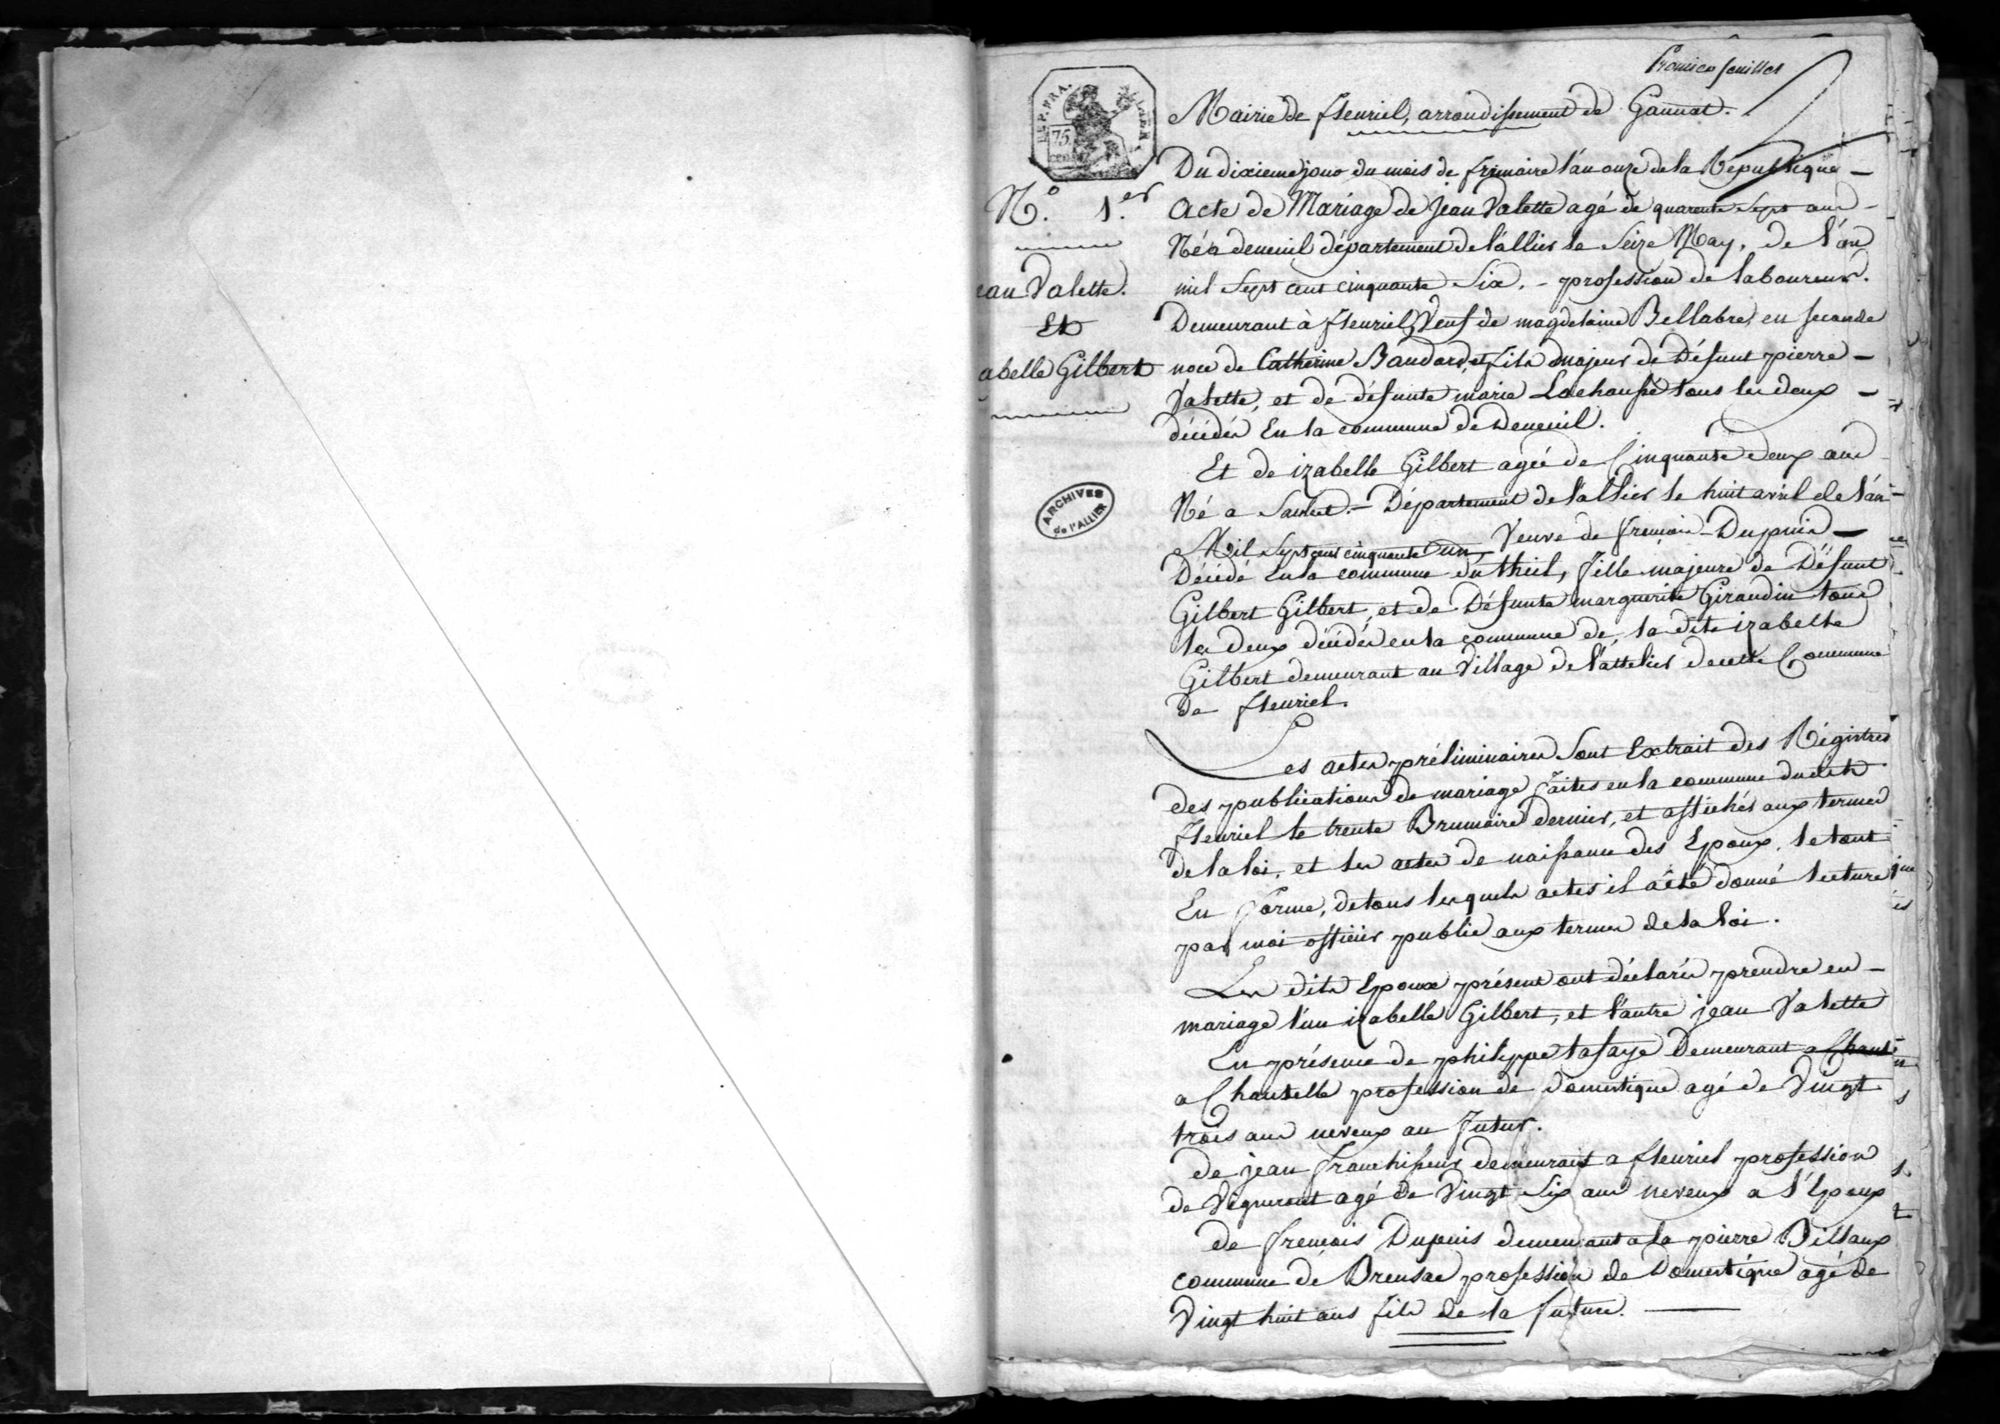 Premier feuillet
REP. FRA.
75
CENT.
Mairie de fleuriel, arrondissement de Gannat.
Du dixieme jour du mois de frimaire l'an onze de la Republique
N.o 1.er
Acte de Mariage de jean Valette agé de quarente Sept ans
Né a deneuil département de l'allier le Seize May, de l'an
ean Valette.
mil Sept cent cinquante Six. profession de laboureur.
Et
Demeurant à fleuriel, Veuf de magdelaine Bellabre, en seconde
abelle Gilbert
noce de Catherine Baudard, et fils majeur de Défunt pierre
Valette, et de défunte marie Lachaussé tous les deux
décédés En la commune de Deneuil.
Et de izabelle Gilbert agée de Cinquante deux ans
Né a Saulcet. Département de l'allier le huit avril de l'an
ARCHIVES
de L'ALLIER
Mil Sept cent cinquante un Veuve de fremain Dupuis
Décédé En la commune du theil, fille majeure de Défunt
Gilbert Gilbert, et de Défunte marguerite Giraudin tous
les deux décédés en la commune de, la dite izabelle
Gilbert demeurant au Village de l'attelier de cette Commune
de fleuriel.
Les actes préliminaires Sont Extrait des Régistres
des publications de mariage faites en la commune dudit
fleuriel le trente Brumaire dernier, et affichés aux termes
de la loi, et les actes de naissance des Epoux, le tout
En forme, de tous lesquels actes il a été donné lecture
par moi officier public aux termes de la loi.
Les dits Epoux présent ont déclarés prendre en
mariage l'un izabelle Gilbert, et l'autre jean Valette
En présence de philippe lafaye Demeurant a
a Chantelle profession de Domestique agé de Vingt
trois ans neveux au futur.
de jean franchisseur demeurant a fleuriel profession
de Vigneront agé de Vingt Six ans neveux a l'Epoux
de fremois Dupuis demeurant a la pierre Billaux
commune de Breusac profession de Domestique agé de
Vingt huit ans fils de la future.